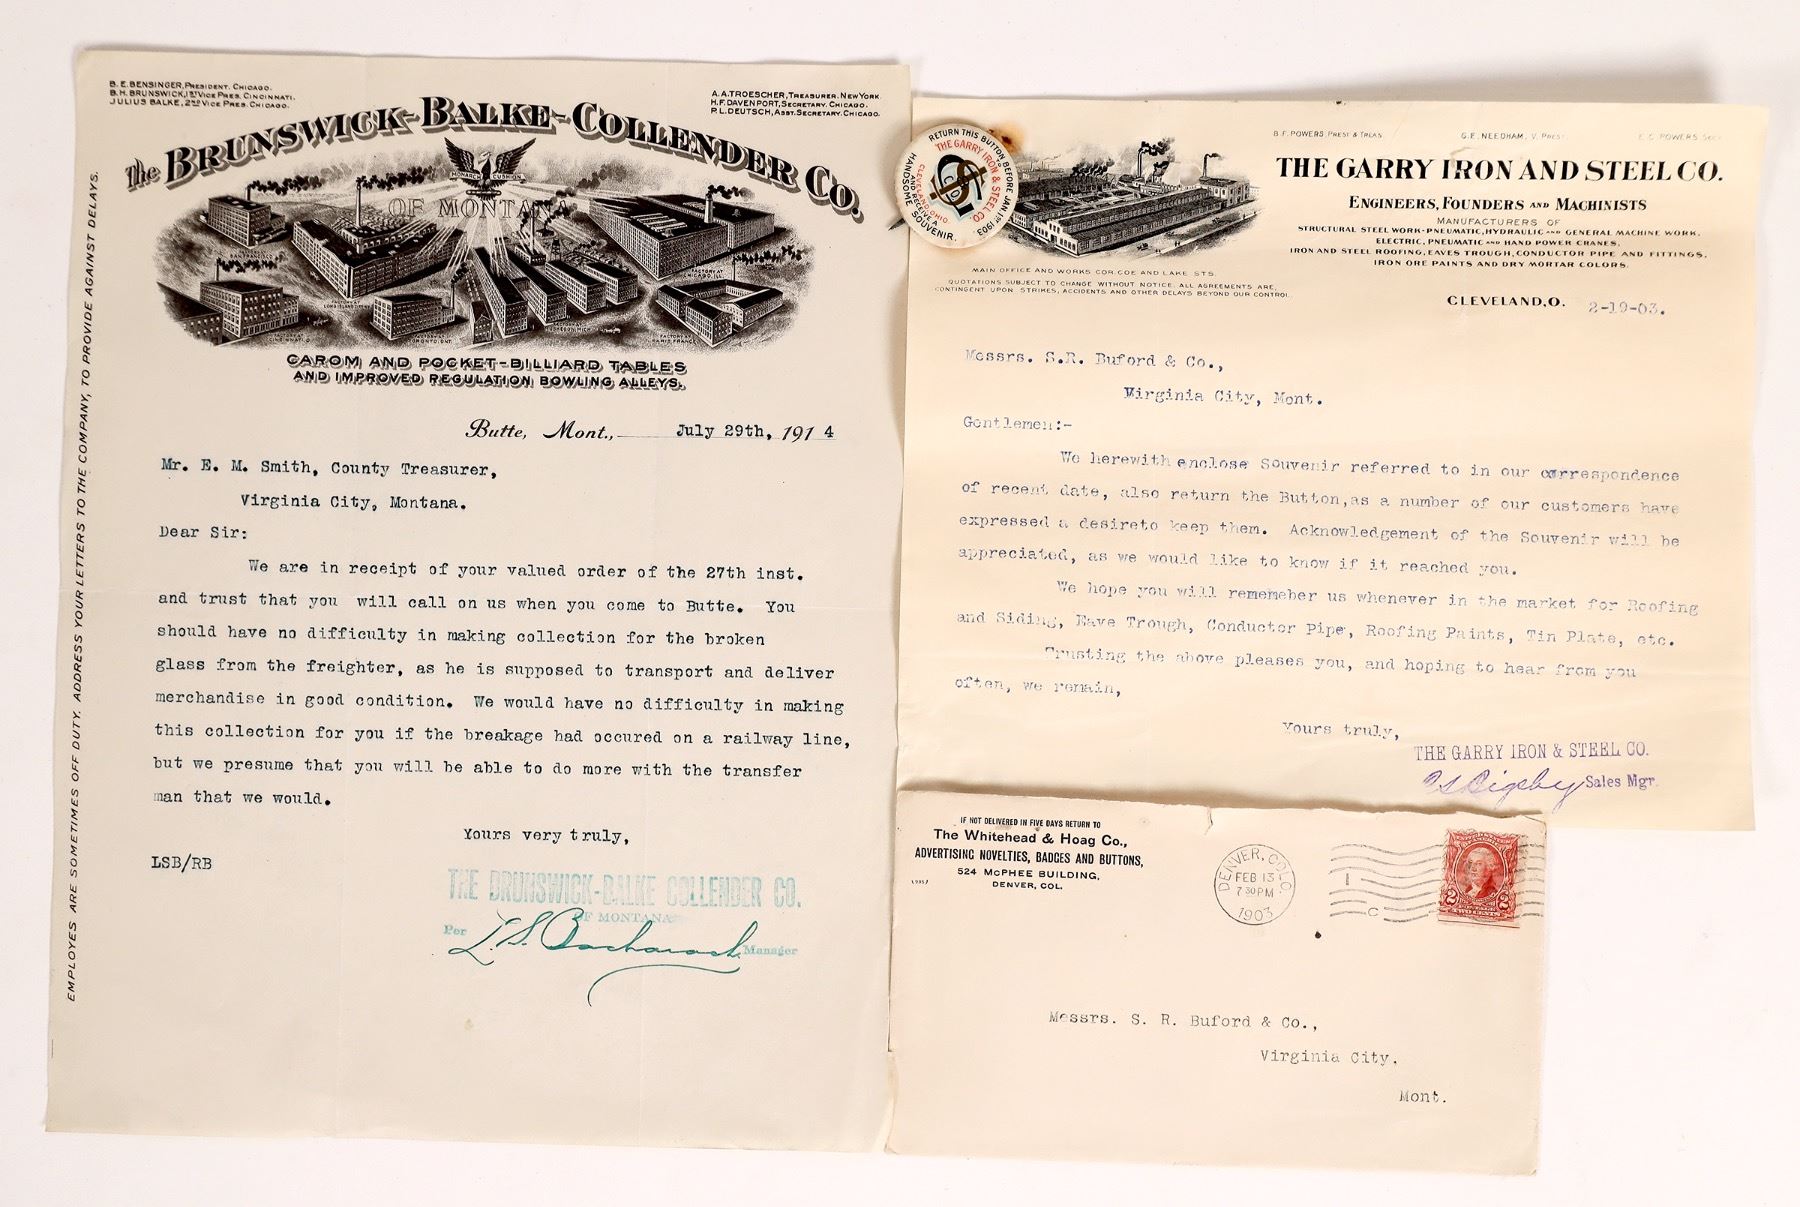 B. E. BENSINGER, PRESIDENT. CHICAGO.
B. H. BRUNSWICK, 1ST VICE PRES. CINCINNATI.
JULIUS BALKE, 2ND VICE PRES. CHICAGO.
A. A. TROESCHER, TREASURER. NEW YORK.
H. F. DAVENPORT, SECRETARY. CHICAGO.
P. L. DEUTSCH, ASST. SECRETARY. CHICAGO.
the BRUNSWICK-BALKE-COLLENDER CO.
MONARCH CUSHION
OF MONTANA
CAROM AND POCKET-BILLIARD TABLES
AND IMPROVED REGULATION BOWLING ALLEYS.
EMPLOYES ARE SOMETIMES OFF DUTY. ADDRESS YOUR LETTERS TO THE COMPANY, TO PROVIDE AGAINST DELAYS.
Butte, Mont., July 29th, 1914
Mr. E. M. Smith, County Treasurer,
Virginia City, Montana.
Dear Sir:
We are in receipt of your valued order of the 27th inst.
and trust that you will call on us when you come to Butte. You
should have no difficulty in making collection for the broken
glass from the freighter, as he is supposed to transport and deliver
merchandise in good condition. We would have no difficulty in making
this collection for you if the breakage had occured on a railway line,
but we presume that you will be able to do more with the transfer
man that we would.
Yours very truly,
LSB/RB
THE BRUNSWICK-BALKE COLLENDER CO.
OF MONTANA
Per L. S. Bacharach Manager
RETURN THIS BUTTON BEFORE JAN 1ST 1903.
AND RECEIVE A HANDSOME SOUVENIR.
THE GARRY IRON & STEEL CO.
CLEVELAND, OHIO
B. F. POWERS, PREST & TREAS.
G. E. NEEDHAM, V. PREST.
E. C. POWERS, SECY
THE GARRY IRON AND STEEL CO.
ENGINEERS, FOUNDERS AND MACHINISTS
MANUFACTURERS OF
STRUCTURAL STEEL WORK-PNEUMATIC, HYDRAULIC AND GENERAL MACHINE WORK,
ELECTRIC, PNEUMATIC AND HAND POWER CRANES,
IRON AND STEEL ROOFING, EAVES TROUGH, CONDUCTOR PIPE AND FITTINGS,
IRON ORE PAINTS AND DRY MORTAR COLORS.
MAIN OFFICE AND WORKS COR. COE AND LAKE STS.
QUOTATIONS SUBJECT TO CHANGE WITHOUT NOTICE. ALL AGREEMENTS ARE
CONTINGENT UPON STRIKES, ACCIDENTS AND OTHER DELAYS BEYOND OUR CONTROL.
CLEVELAND, O. 2-19-03.
Messrs. S.R. Buford & Co.,
Virginia City, Mont.
Gentlemen:-
We herewith enclose Souvenir referred to in our correspondence
of recent date, also return the Button, as a number of our customers have
expressed a desireto keep them. Acknowledgement of the Souvenir will be
appreciated, as we would like to know if it reached you.
We hope you will rememeber us whenever in the market for Roofing
and Siding, Eave Trough, Conductor Pipe, Roofing Paints, Tin Plate, etc.
Trusting the above pleases you, and hoping to hear from you
often, we remain,
Yours truly,
THE GARRY IRON & STEEL CO.
Bigsby Sales Mgr.
IF NOT DELIVERED IN FIVE DAYS RETURN TO
The Whitehead & Hoag Co.,
ADVERTISING NOVELTIES, BADGES AND BUTTONS,
524 McPHEE BUILDING,
DENVER, COL.
DENVER, COLO.
FEB 13
7 30 PM
1903
1
C
2 2
TWO CENTS
Messrs. S. R. Buford & Co.,
Virginia City,
Mont.